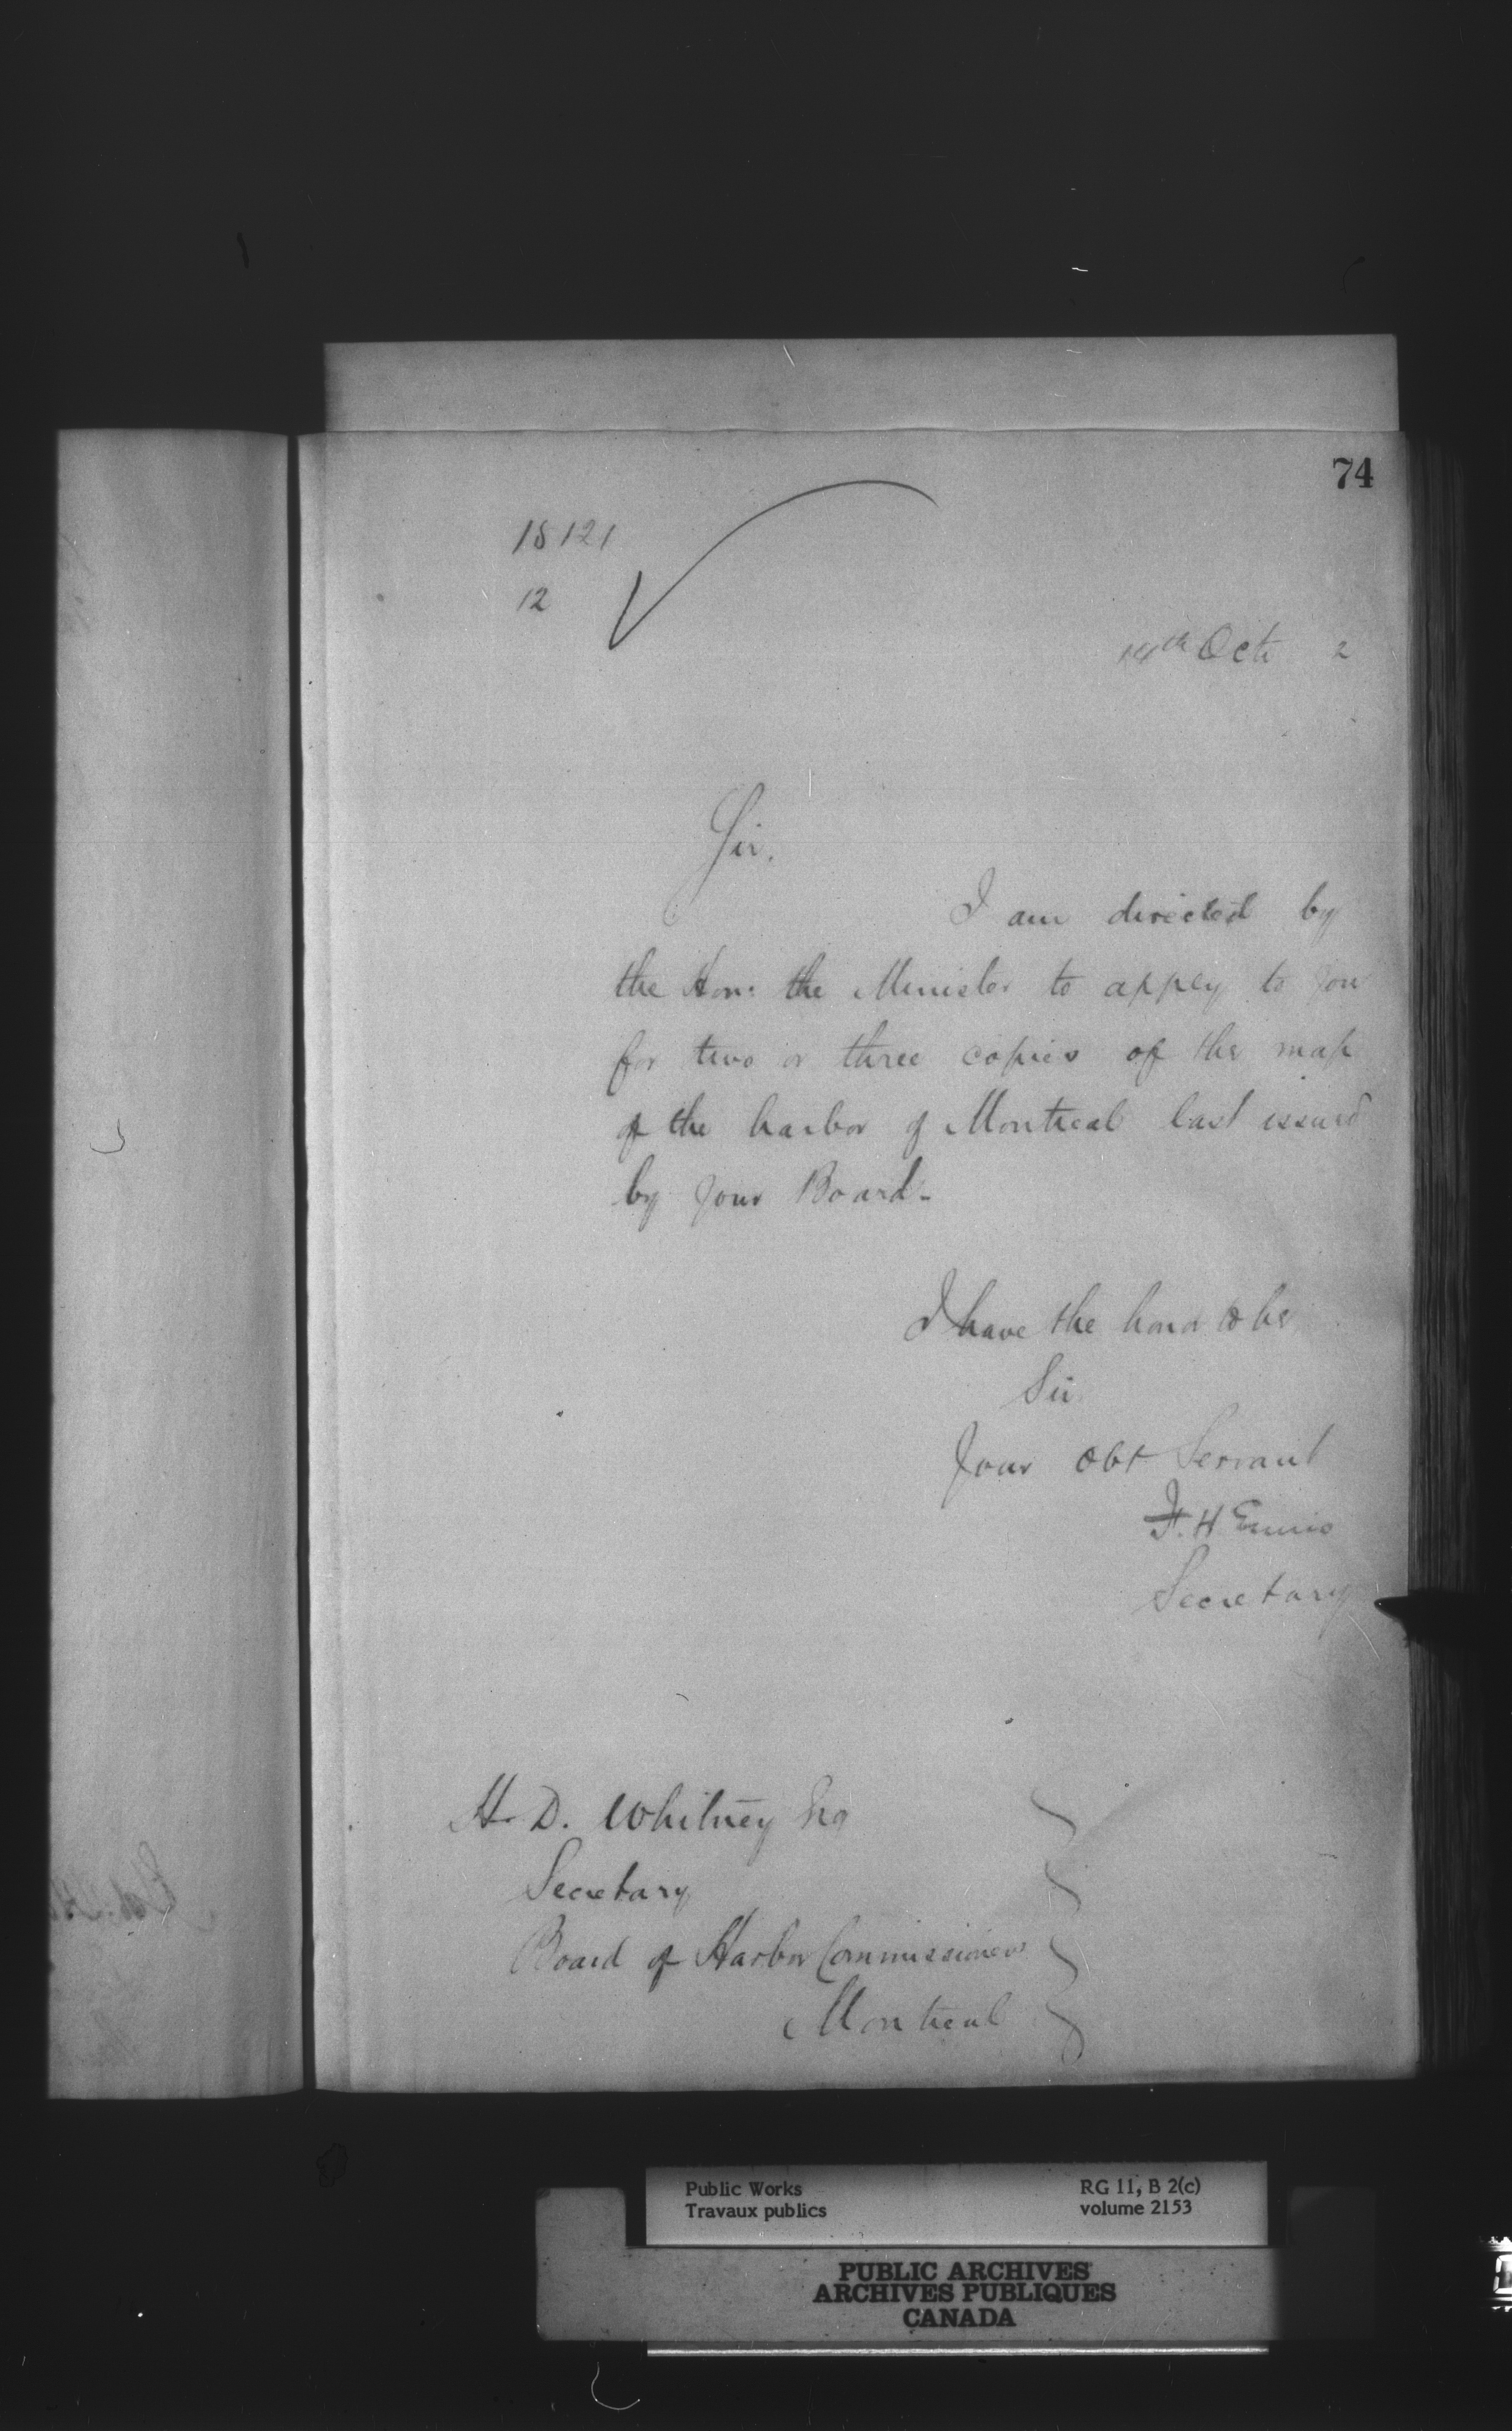 74
15121
12
14th Oct 2
Sir,
I am directed by
the Hon: the Minister to apply to you
for two or three copies of the map
of the harbor of Montreal last issued
by your Board-
I have the honor to be
Sir
Your obt Servant
F. H Ennis
Secretary
H. D. Whitney Esq
Secretary
Board of Harbor Commissioners
Montreal
Public Works
Travaux publics
RG 11, B 2(c)
volume 2153
PUBLIC ARCHIVES
ARCHIVES PUBLIQUES
CANADA